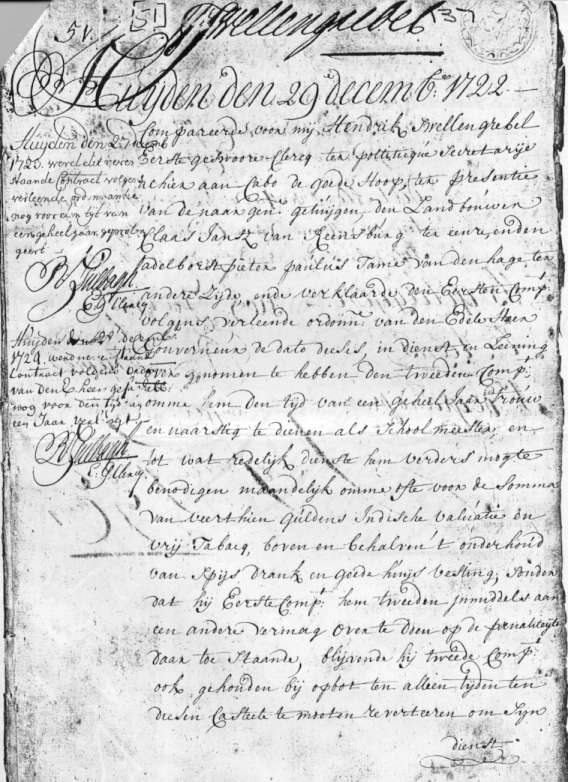 51
51
H: Swellengrebel
137
Huyden den 29 decemb:r 1722.
Huyden den
1723. werd dit neven
staande Contract volgens
verleende ordonnantie
nog voor een tyd van
een geheel jaar geprolon
geert
R Tulbagh
E: g: Clercq.
Huyden den decemb:
1724. werd nevenstaande
Contract volgens
van den E heer
nog voor den tyd van
een Jaar verl
R Tulbagh
E. g Clercq.
Compareerde voor my, Hendrik Swellengrebel
Eerste geswoore Clercq ter polliticque Secretarije
alhier aan Cabo de goede Hoop, ter presentie
van de naargen: getuijgen, den Landbouwer
Claas Jansz van Reensburg ter eenre, en den
adelborst pieter paulus Tame van den hage ter
andere Zyde, ende verklaarde den Eersten Comp:t
volgens verleende ordonn: van den Edele Heer
Gouverneur de dato deeses, in dienst en Leening
genomen te hebben den tweeden Comp:t
omme hem den tyd van een geheel Jaar trouw
en naarstig te dienen als Schoolmeester, en
tot wat redelijk dienste hem verders mogte
benodigen maandelijk omme ofte voor de Somma
van veerthien guldens Indische valuatie en
vrij Tabacq, boven en behalven 't onderhoud
van Spijs drank en goede huijsvesting, sonder
dat hij Eerste Comp:t hem tweeden inmiddels aan
een andere vermag over te doen op de pœnaliteijt
daar toe staande, blijvende hij tweede Comp:t
ook gehouden bij opbot ten allen tijden ten
diesen Casteele te moeten reverteeren om Syn
dienst